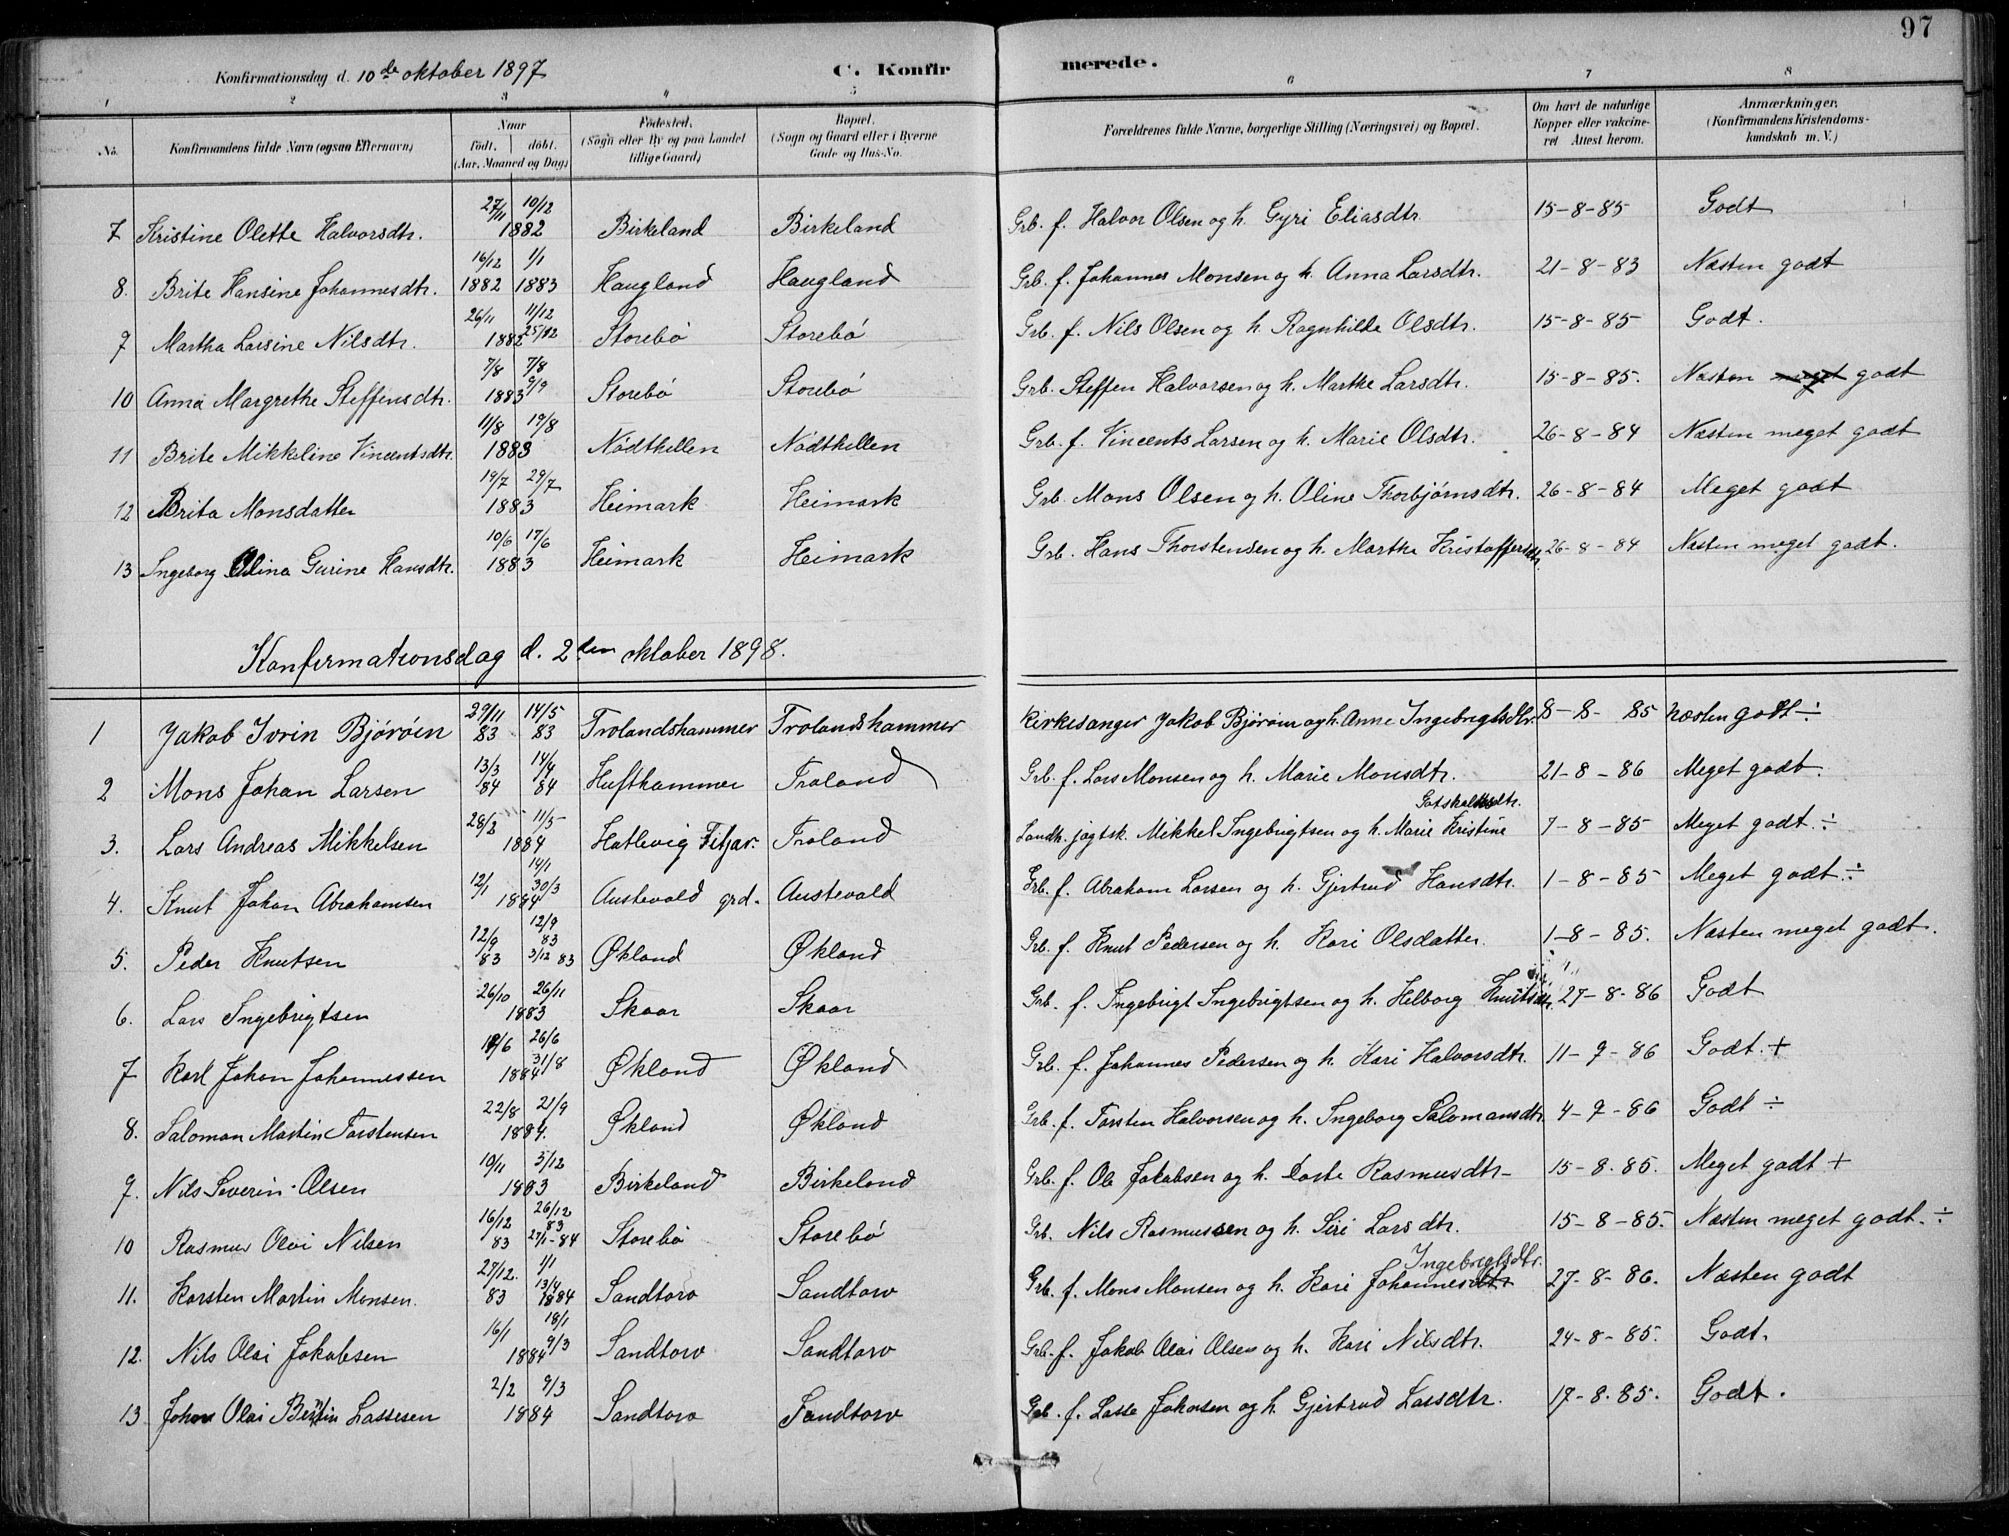 97
Konfirmationsdag d. 10de oktober 1897
C. Konfirmerede.
1 2 3 4 5 6 7 8
No. Konfirmandens fulde Navn (ogsaa Efternavn) Naar født. døbt. (Aar, Maaned og Dag) Fødested. (Sogn eller By og paa Landet tillige Gaard) Bopæl. (Sogn og Gaard eller i Byerne Gade og Hus-No. Forældrenes fulde Navne, borgerlige Stilling (Næringsvei) og Bopæl. Om havt de naturlige Kopper eller vakcineret Attest herom. Anmærkninger. (Konfirmandens Kristendomskundskab m. V.)
7 Kristine Olette Halvorsdtr. 27/11 10/12 1882 Birkeland Birkeland Grb. f. Halvor Olsen og h. Gyri Eliasdtr. 15-8-85 Godt
8. Brite Hansine Johannesdtr. 16/12 1882 1/1 1883 Haugland Haugland Grb. f. Johannes Monsen og h. Anna Larsdtr. 21-8-83 Næsten godt
9 Martha Larsine Nilsdtr. 26/11 11/12 1882 25/12 Storebø Storebø Grb. f. Nils Olsen og h. Ragnhilde Olsdtr. 15-8-85 Godt.
10 Anna Margrethe Steffensdtr. 7/8 7/8 1883 9/9 Storebø Storebø Grb. Steffen Halvorsen og h. Marthe Larsdtr. 15-8-85. Næsten meget godt
11 Brite Mikkeline Vincentsdtr. 11/8 19/8 1883 Nødthellen Nødthellen Grb. f. Vincents Larsen og h. Marie Olsdtr. 26-8-84 Næsten meget godt
12 Brita Monsdatter 19/7 29/7 1883 Heimark Heimark Grb. Mons Olsen og h. Oline Thorbjørnsdtr. 26-8-84 Meget godt
13 Ingeborg Olina Gurine Hansdtr. 10/6 17/6 1883 Heimark Heimark Grb. Hans Thorstensen og h. Marthe Kristoffersdtr. 26-8-84 Næsten meget godt.
Konfirmationsdag d. 2den oktober 1898.
1 Jakob Ivrin Bjørøen 29/11 83 14/5 83 Trolandshammer Trolandshammer Kirkesanger Jakob Bjørøen og h. Anne Ingebrigtsdtr. 8-8-85 Næsten godt ÷
2 Mons Johan Larsen 13/3 84 14/4 84 Hufthammer Troland Grb. f. Lars Monsen og h. Marie Monsdtr. 21-8-86 Meget godt.
3. Lars Andreas Mikkelsen 28/2 11/5 1884 Hatlevig Fitjar. Troland Landh. jagtsk. Mikkel Ingebrigtsen og h. Marie Kristine Gotskalksdtr. 7-8-85 Meget godt. ÷
4. Knut Johan Abrahamsen 12/1 14/1 30/3 1884 Austevold grd. Austevold Grb. f. Abraham Larsen og h. Gjertrud Hansdtr. 1-8-85 Meget godt. ÷
5. Peder Knutsen 12/9 83 12/9 83 3/12 83 Økland Økland Grb. f. Knut Pedersen og h. Kari Olsdatter. 1-8-85. Næsten meget godt.
6. Lars Ingebrigtsen 26/10 26/11 1883 Skaar Skaar Grb. f. Ingebrigt Ingebrigtsen og h. Helborg Knutsdtr. 27-8-86 Godt
7 Karl Johan Johannessen 19/6 26/6 31/8 1884 Økland Økland Grb. f. Johannes Pedersen og h. Kari Halvorsdtr. 11-9-86 Godt. +
8. Saloman Martin Torstensen 22/8 21/9 1884. Økland Økland Grb. f. Torsten Halvorsen og h. Ingeborg Salomansdtr. 4-9-86 Godt ÷
9. Nils Severin Olsen 10/11 3/12 1883 Birkeland Birkeland Grb. f. Ole Jakobsen og h. Dorte Rasmusdtr 15-8-85. Meget godt +
10 Rasmus Olai Nilsen 16/12 83 26/12 83 27/1-84 Storebø Storebø Grb. Nils Rasmussen og h. Siri Larsdtr. 15-8-85. Næsten meget godt. ÷
11. Karsten Martin Monsen. 27/12. 83 1/1 13/4 1884 Sandtorv Sandtorv Grb. f. Mons Monsen og h. Kari Johannesdtr Ingebrigtsdtr. 27-8-86. Næsten godt
12. Nils Olai Jakobsen 16/1 18/1 9/3 1884 Sandtorv Sandtorv Grb. f. Jakob Olai Olsen og h. Kari Nilsdtr. 24-8-85. Godt.
13 Johan Olai Bertin Lassesen 2/2 9/3 1884 Sandtorv Sandtorv Grb. f. Lasse Johnsen og h. Gjertrud Larsdtr. 17-8-85. Godt.